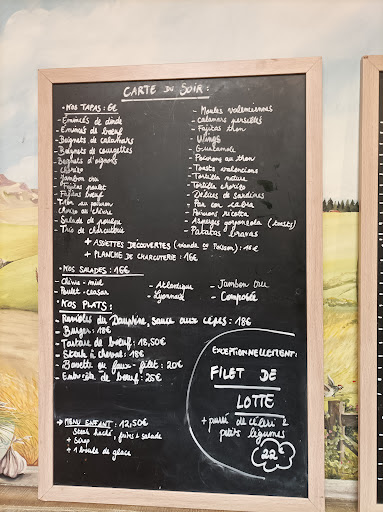 CARTE DU SOIR :
• NOS TAPAS : 6€
- Emincés de dinde
- Emincés de boeuf
- Beignets de calamars
- Beignets de courgettes
- Beignets d'oignons
- Chorizo
- Jambon cru
- Fajitas poulet
- Fajitas boeuf
- Thon au poivron
- Chorizo au chèvre
- Salade de poulpe
- Trio de charcuterie
- Moules valenciennes
- Calamars persillés
- Fajitas thon
- Wings
- Guacamole
- Poivrons au thon
- Toasts valencians
- Tortilla nature
- Tortilla chorizo
- Délices de sardines
- Pan con
- Poivrons ricotta
- Asperges gorgonzola (toasts)
- Patatas bravas
+ ASSIETTES DÉCOUVERTES (viande ou Poisson) : 18€
+ PLANCHE DE CHARCUTERIE : 16€
• NOS SALADES : 16€
- Chèvre - miel
- Poulet - ceasar
- Atlantique
- Lyonnais
- Jambon cru
- Composée
• NOS PLATS :
- Ravioles du Dauphiné, sauce aux cèpes : 18€
- Burger : 18€
- Tartare de boeuf : 18,50€
- Steak à cheval : 18€
- Bavette ou faux-filet : 20€
- Entrecôte de boeuf : 25€
EXCEPTIONNELLEMENT :
FILET DE
LOTTE
+ purée de céleri &
petits légumes
22€
→ MENU ENFANT : 12,50€
Steak haché, frites & salade
+ Sirop
+ 1 boule de glace